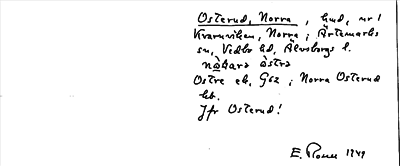 Osterud, Norra, hmd, nr 1
Kvarnviken, Norra; Ärtemarks
sn, Vedbo hd, Älvsborgs l.
nòḳara òstra
Östre ek. G52; Norra Osterud
kb.
Jfr Osterud!
E. 1949